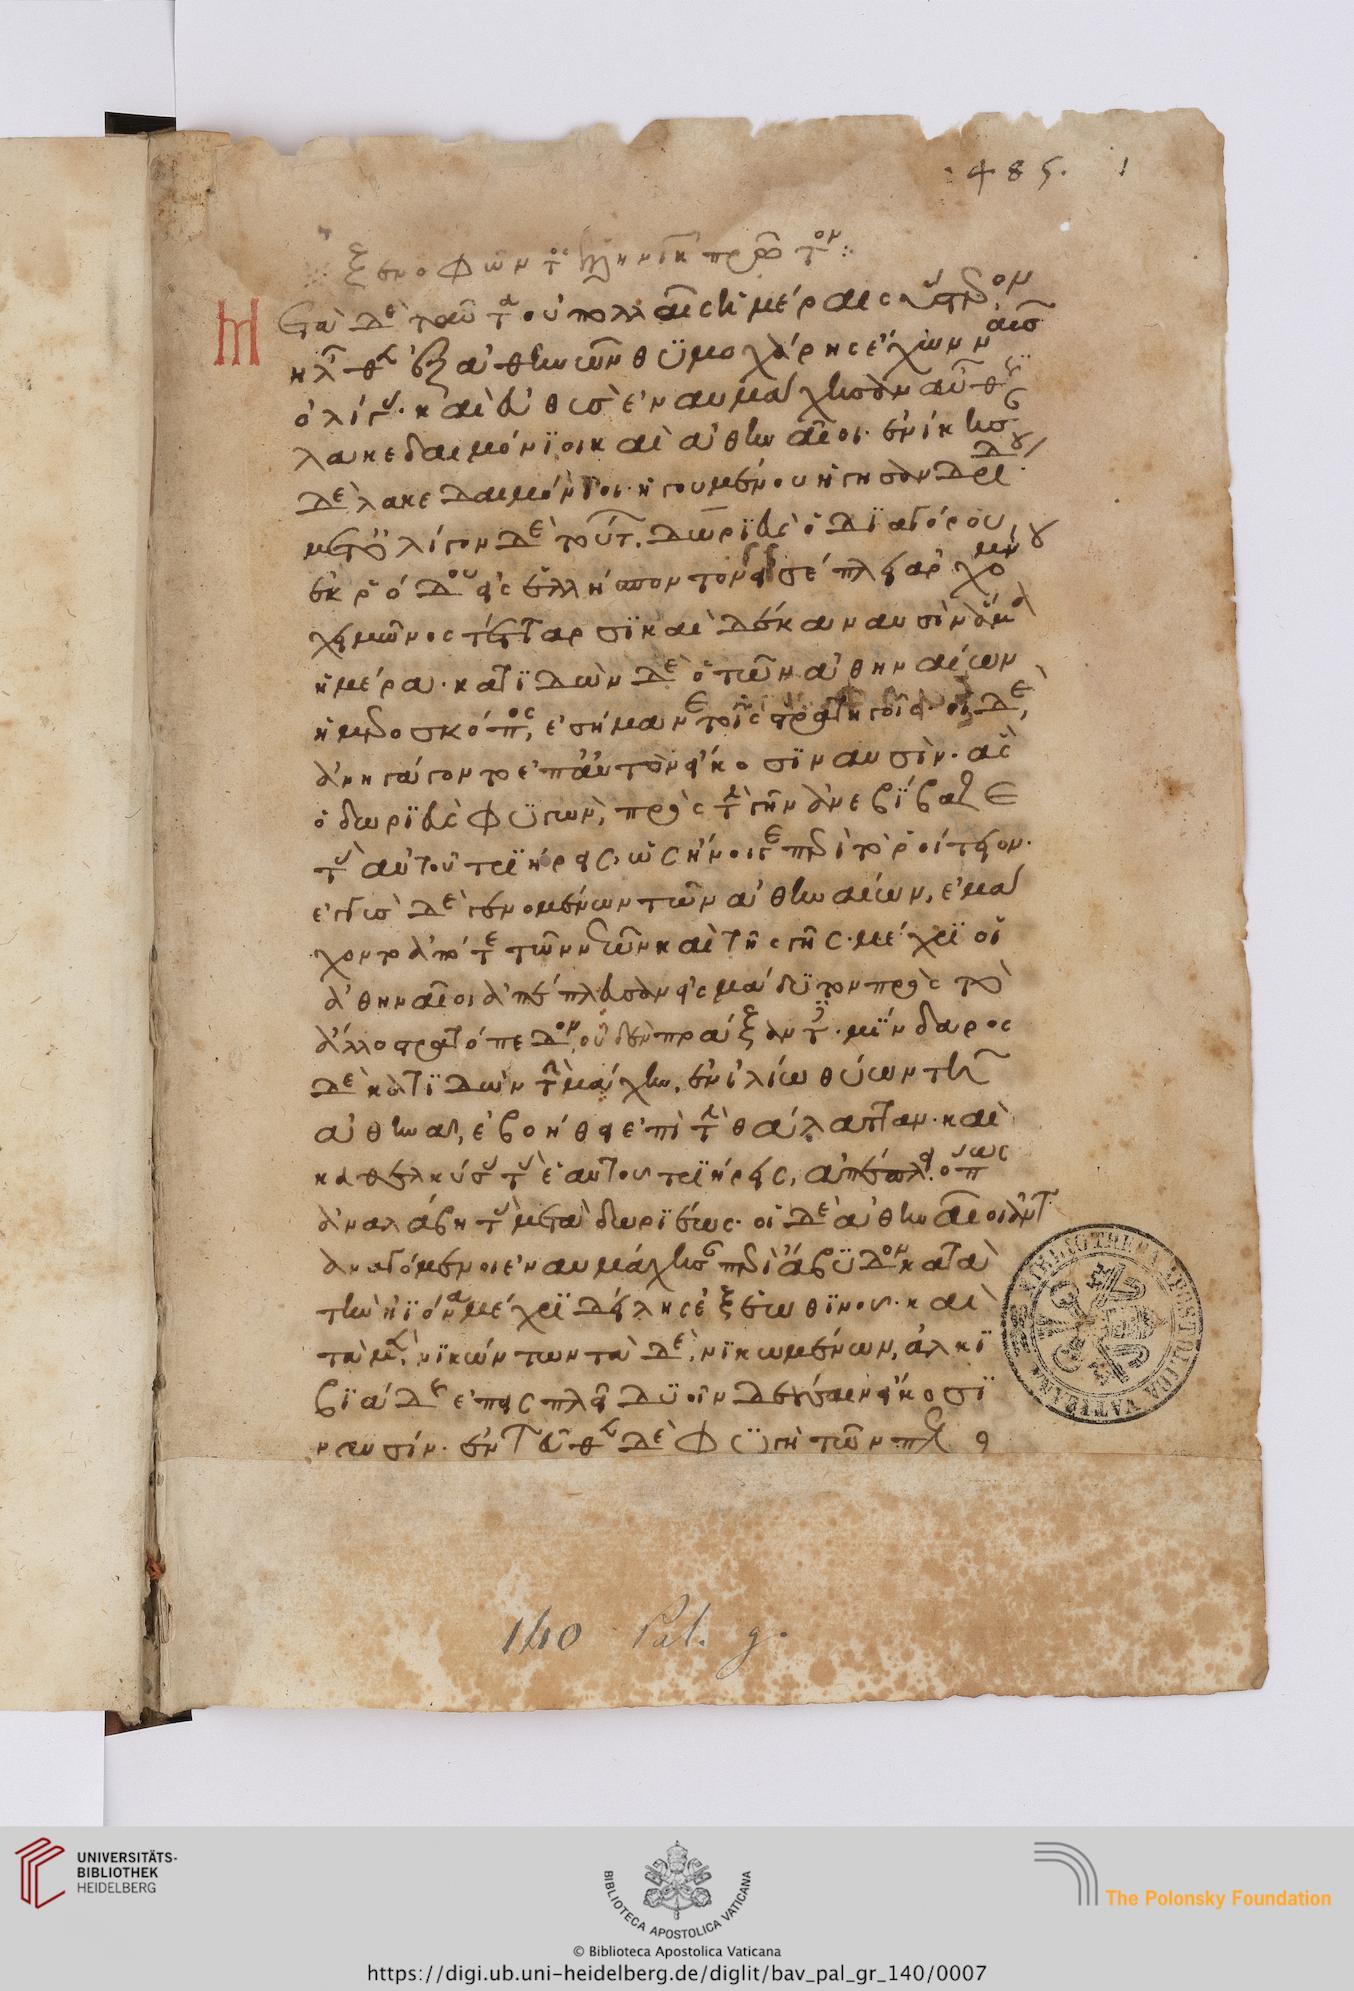 · 485 · 1
ξενοφῶντος ἑλληνικῶν πρῶτον
Μετὰ δὲ ταῦτα οὐ πολλαῖς ἡμέραις ὕστερον
ἦλθεν ἐξ ἀθηνῶν θυμοχάρης ἔχων ναῦς
ὀλίγας. καὶ εὐθὺς ἐναυμάχησαν αὖθις
λακεδαιμόνιοι καὶ ἀθηναῖοι. ἐνίκησαν
δὲ λακεδαιμόνιοι. ἡγουμένου ἡγησανδρί
μετ᾽ ὀλίγον δὲ τούτων, δωριεὺς ὁ διαγόρου,
ἐκ ῥόδου εἰς ἑλλήσποντον εἰσέπλει ἀρχομένου
χειμῶνος τέτταρσι καὶ δέκα ναυσὶν ἅμα
ἡμέρα. κατιδὼν δὲ ὁ τῶν ἀθηναίων
ἡμεροσκόπος, ἐσήμανε τοῖς στρατηγοῖς. οἱ δὲ,
ἀνηγάγοντο ἐπ᾽ αὐτὸν εἴκοσι ναυσὶν. ἃς
ὁ δωριεὺς φυγὼν, πρὸς τὴν γῆν ἀνεβίβαζε
τὰς αὐτοῦ τριήρεις, ὡς ἤνοιγε περὶ τὸ ῥοίτειον.
ἐγγὺς δὲ γενομένων τῶν ἀθηναίων, ἐμά
χοντο ἀπό τε τῶν νεῶν καὶ τῆς γῆς. μέχρι οἱ
ἀθηναῖοι ἀπέπλευσαν εἰς μάδυτον πρὸς τὸ
ἄλλο στρατόπεδον, οὐδὲν πράξαντες. μίνδαρος
δὲ κατιδὼν τὴν μάχην, ἐν ἰλίω θύων τῆ
ἀθηνᾶ, ἐβοήθει ἐπὶ τὴν θάλατταν. καὶ
καθελκύσας τὰς ἑαυτοῦ τριήρεις, ἀπέπλει. ὅπως
ἀναλάβη τὰς μετὰ δωριέως. οἱ δὲ ἀθηναῖοι ἀντ
αναγόμενοι ἐναυμάχησαν περὶ ἄβυδον κατὰ
τὴν ἠϊόνα μέχρι δείλης ἐξ ἑωθινοῦ. καὶ
τὰ μὲν, νικώντων τὰ δὲ, νικωμένων, ἀλκι
βιάδης ἐπεισπλεῖ δυοῖν δεούσαιν εἴκοσι
ναυσίν. ἐντεῦθεν δὲ φυγὴ τῶν πε
140 Pal. g.
BIBLIOTHECA APOSTOLICA VATICANA
UNIVERSITÄTS-
BIBLIOTHEK
HEIDELBERG
BIBLIOTECA APOSTOLICA VATICANA
The Polonsky Foundation
© Biblioteca Apostolica Vaticana
https://digi.ub.uni-heidelberg.de/diglit/bav_pal_gr_140/0007